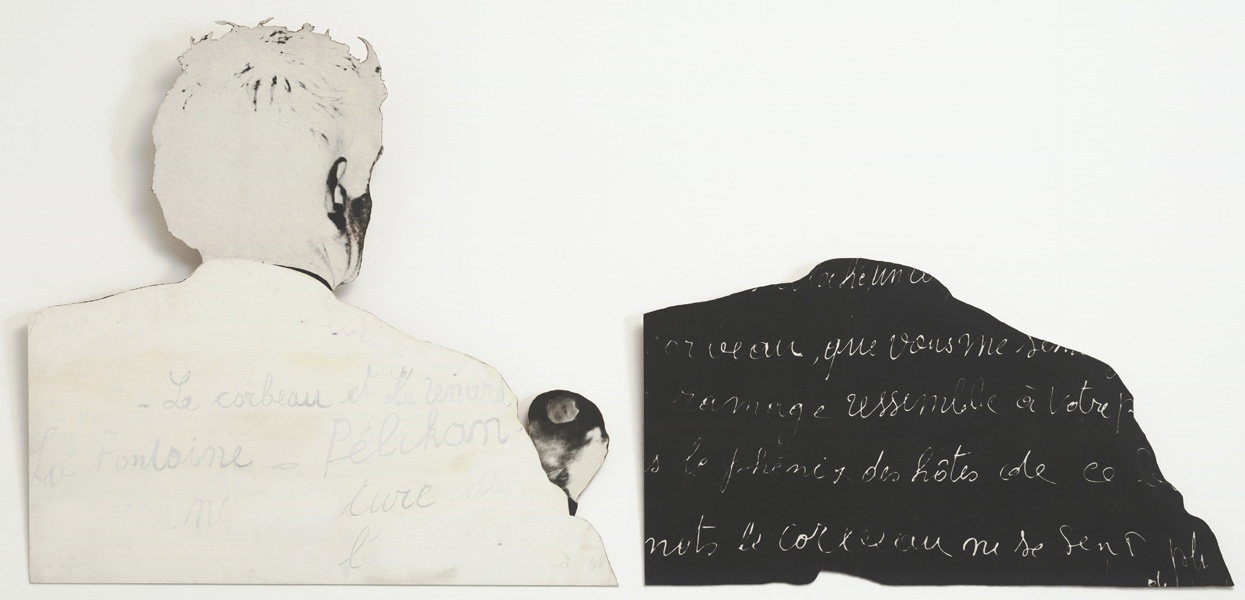 - Le corbeau et Le renard
La Fontaine - Pélikan
une ture de
l'
corbeau, que vous me sem
ramage ressemble à votre p
s le phénix des hôtes de ce
mots le corbeau ne se sent